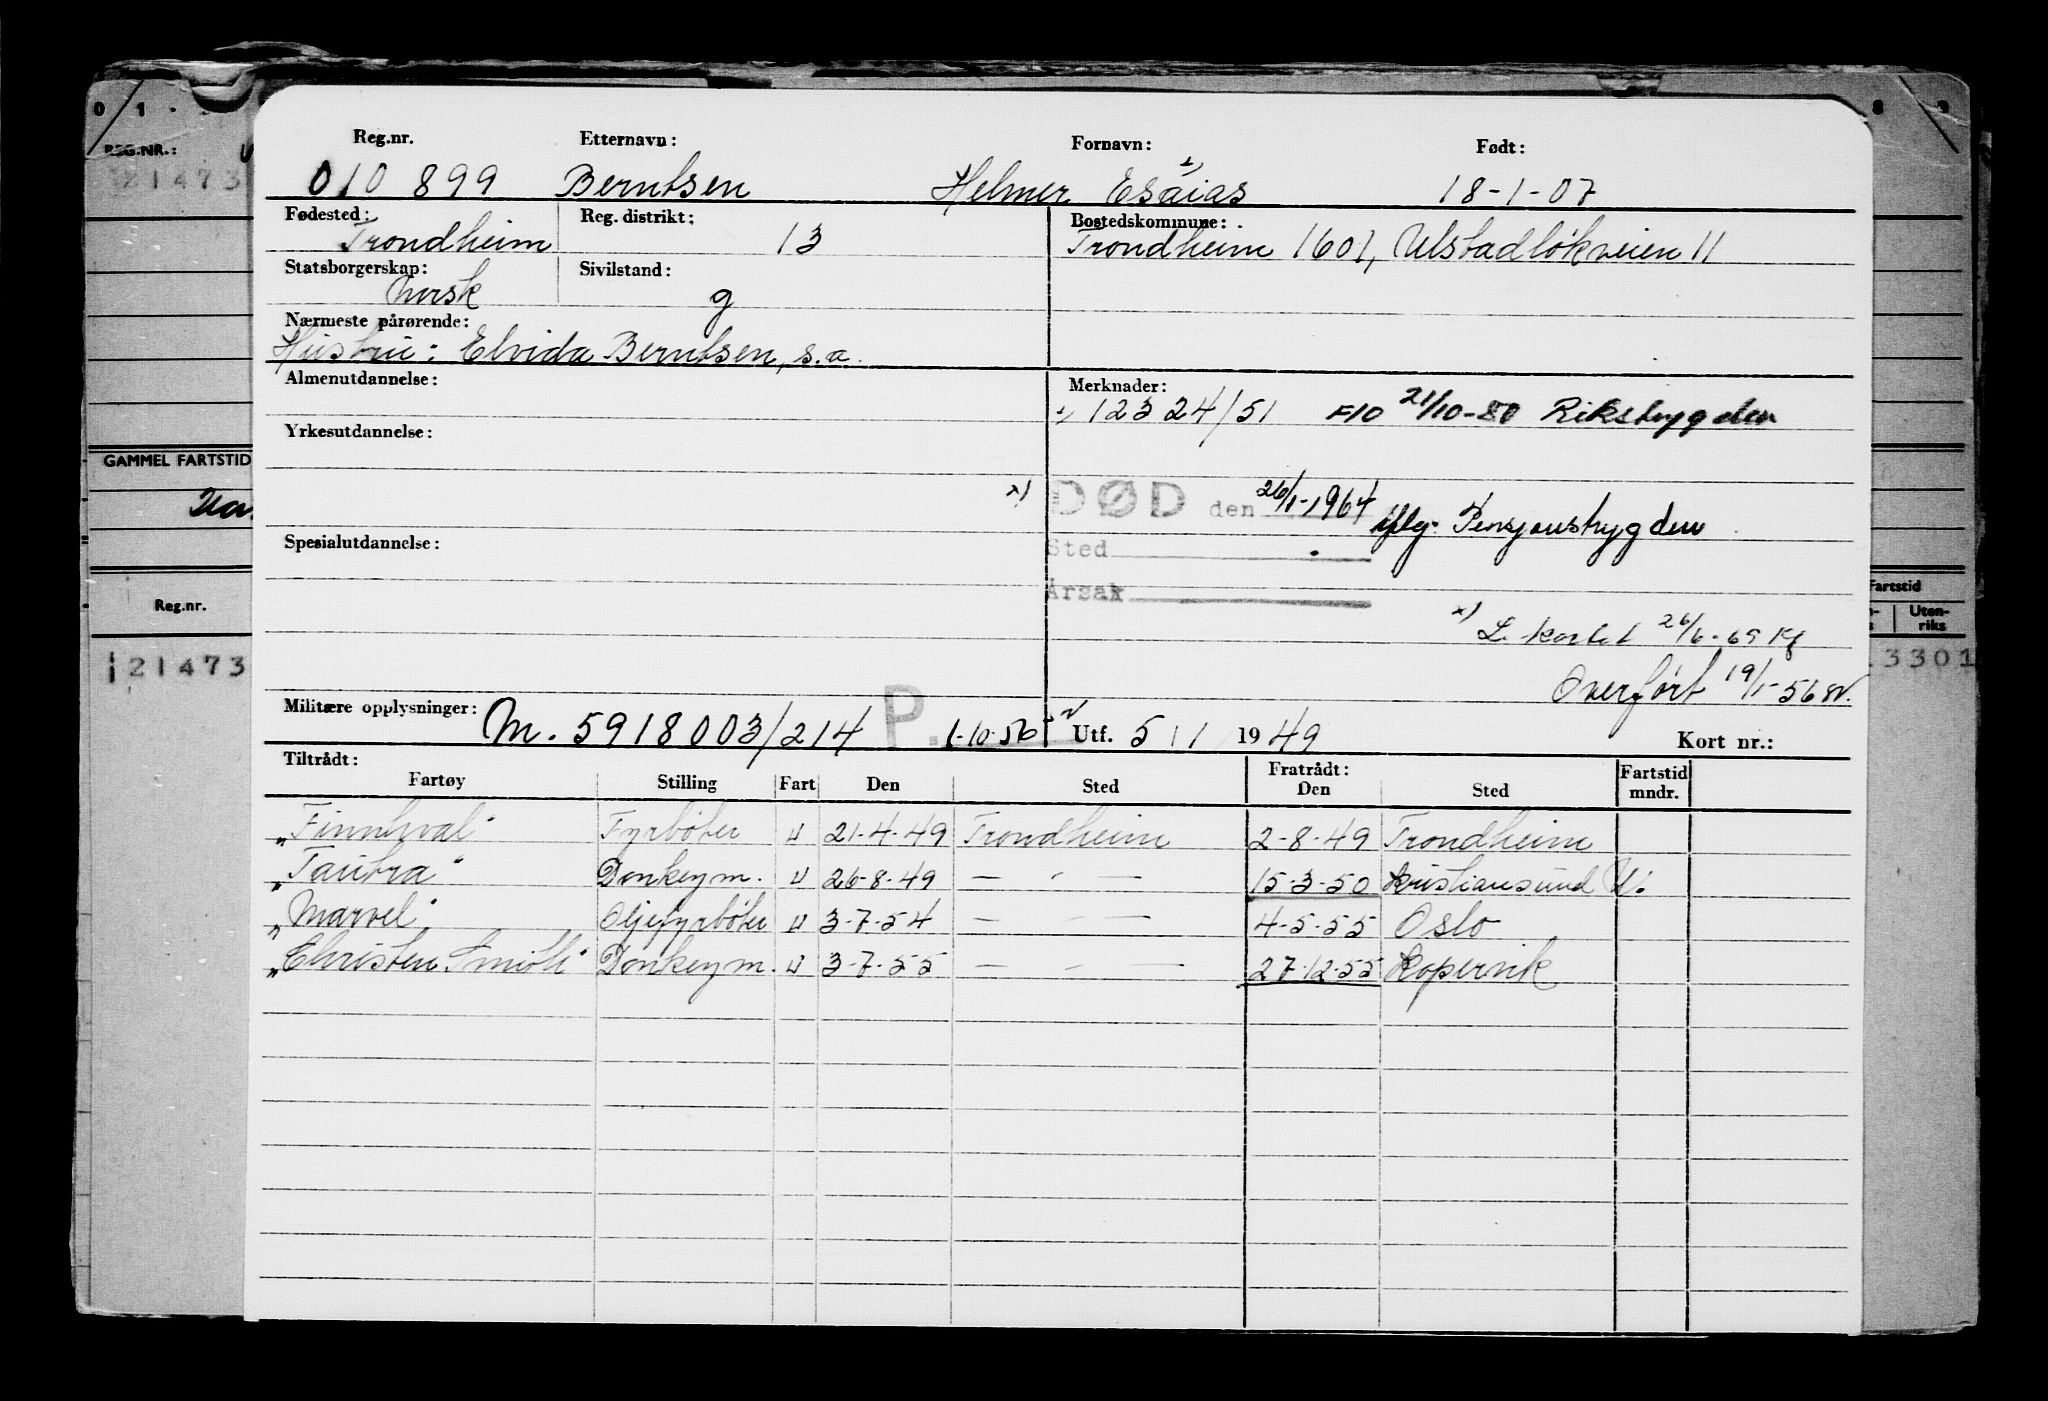 0 1 - 8 9
REG.NR.:
21473
GAMMEL FARTSTID
Reg.nr.
21473
Fartstid
Uten-
riks
3301
Reg.nr. Etternavn: Fornavn: Født:
010 899 Berntsen Helmer Esaias 18-1-07
Fødested: Reg. distrikt: Bostedskommune:
Trondheim 13 Trondheim 1601, Ulstadløkveien 11
Statsborgerskap: Sivilstand:
norsk g
Nærmeste pårørende:
Hustru: Elvida Berntsen, s.a.
Almenutdannelse: Merknader:
1) 12324/51 F10 21/10-80 Rikstrygden
Yrkesutdannelse:
x) DØD den 26/1-1964 iflg. Pensjonstrygden
Spesialutdannelse: Sted
Årsak
x) L. kortet 26/6-69 Kf
Overført 19/1-56
Militære opplysninger: M. 5918003/214 P. 1-10-56 Utf. 5/1 1949 Kort nr.:
Tiltrådt: Fratrådt: Fartstid
Fartøy Stilling Fart Den Sted Den Sted mndr.
"Finnhval" Fyrbøter U 21-4-49 Trondheim 2-8-49 Trondheim
"Tautra" Donkeym. U 26-8-49 — " — 15-3-50 Kristiansund N.
"Marvel" Oljefyrbøter U 3-7-54 — " — 4-5-55 Oslo
"Christen Smith" Donkeym. U 3-7-55 — " — 27-12-55 Kopervik